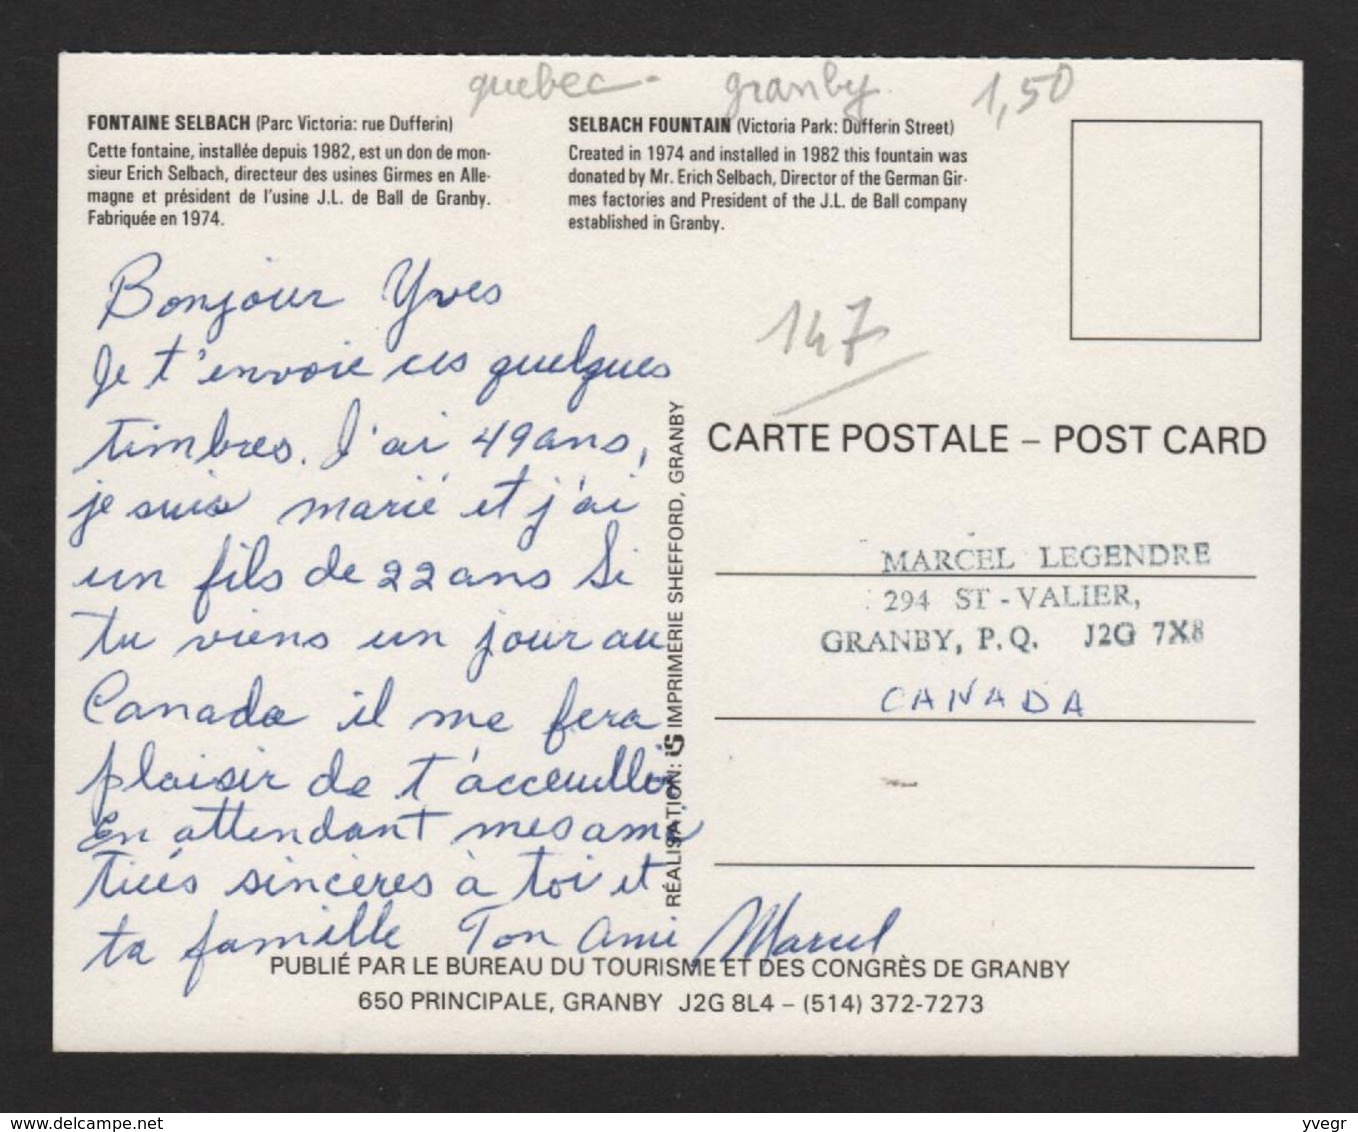 quebec - granby 1,50
FONTAINE SELBACH (Parc Victoria: rue Dufferin)
Cette fontaine, installée depuis 1982, est un don de mon-
sieur Erich Selbach, directeur des usines Girmes en Alle-
magne et président de l'usine J.L. de Ball de Granby.
Fabriquée en 1974.
SELBACH FOUNTAIN (Victoria Park: Dufferin Street)
Created in 1974 and installed in 1982 this fountain was
donated by Mr. Erich Selbach, Director of the German Gir-
mes factories and President of the J.L. de Ball company
established in Granby.
Bonjour Yves
Je t'envoie ces quelques
timbres. J'ai 49 ans,
je suis marié et j'ai
un fils de 22 ans Si
tu viens un jour au
Canada il me fera
plaisir de t'acceuillir
En attendant mes ami
tiés sincères à toi et
ta famille Ton Ami Marcel
147
RÉALISATION: iS IMPRIMERIE SHEFFORD, GRANBY
CARTE POSTALE – POST CARD
MARCEL LEGENDRE
294 ST-VALIER,
GRANBY, P.Q. J2G 7X8
CANADA
PUBLIÉ PAR LE BUREAU DU TOURISME ET DES CONGRÈS DE GRANBY
650 PRINCIPALE, GRANBY J2G 8L4 – (514) 372-7273
delcampe.net
yvegr